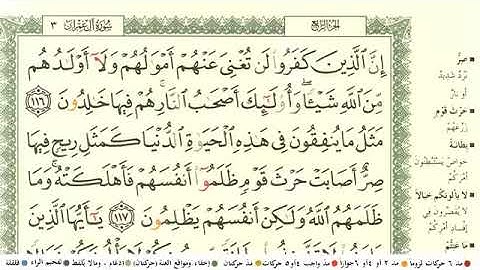 سُورَةُ آلِ عِمْرَانَ ٣
الجُزءُ الرَّابِع
إِنَّ ٱلَّذِينَ كَفَرُوا۟ لَن تُغْنِىَ عَنْهُمْ أَمْوَٰلُهُمْ وَلَآ أَوْلَٰدُهُم
مِّنَ ٱللَّهِ شَيْـًٔا ۖ وَأُو۟لَٰٓئِكَ أَصْحَٰبُ ٱلنَّارِ ۚ هُمْ فِيهَا خَٰلِدُونَ ١١٦
مَثَلُ مَا يُنفِقُونَ فِى هَٰذِهِ ٱلْحَيَوٰةِ ٱلدُّنْيَا كَمَثَلِ رِيحٍ فِيهَا
صِرٌّ أَصَابَتْ حَرْثَ قَوْمٍ ظَلَمُوٓا۟ أَنفُسَهُمْ فَأَهْلَكَتْهُ ۚ وَمَا
ظَلَمَهُمُ ٱللَّهُ وَلَٰكِنْ أَنفُسَهُمْ يَظْلِمُونَ ١١٧ يَٰٓأَيُّهَا ٱلَّذِينَ
صِرٌّ
بَرْدٌ شَدِيدٌ
أو نارٌ
حَرْثَ قَوْمٍ
زَرْعَهُمْ
بِطَانَةً
خَوَاصَّ يَسْتَبْطِنُونَ
أَمْرَكُمْ
لا يَأْلُونَكُمْ خَبَالاً
لا يُقَصِّرُونَ في
إفْسَادِ أمْرِكُمْ
مد ٦ حركات لزوما
مد ٢ أو ٤ أو ٦ جوازا
مد واجب ٤ أو ٥ حركات
مد حركتان
إخفاء، ومواقع الغنة (حركتان)
ادغام، ومالا يلفظ
تفخيم الراء
قلقلة